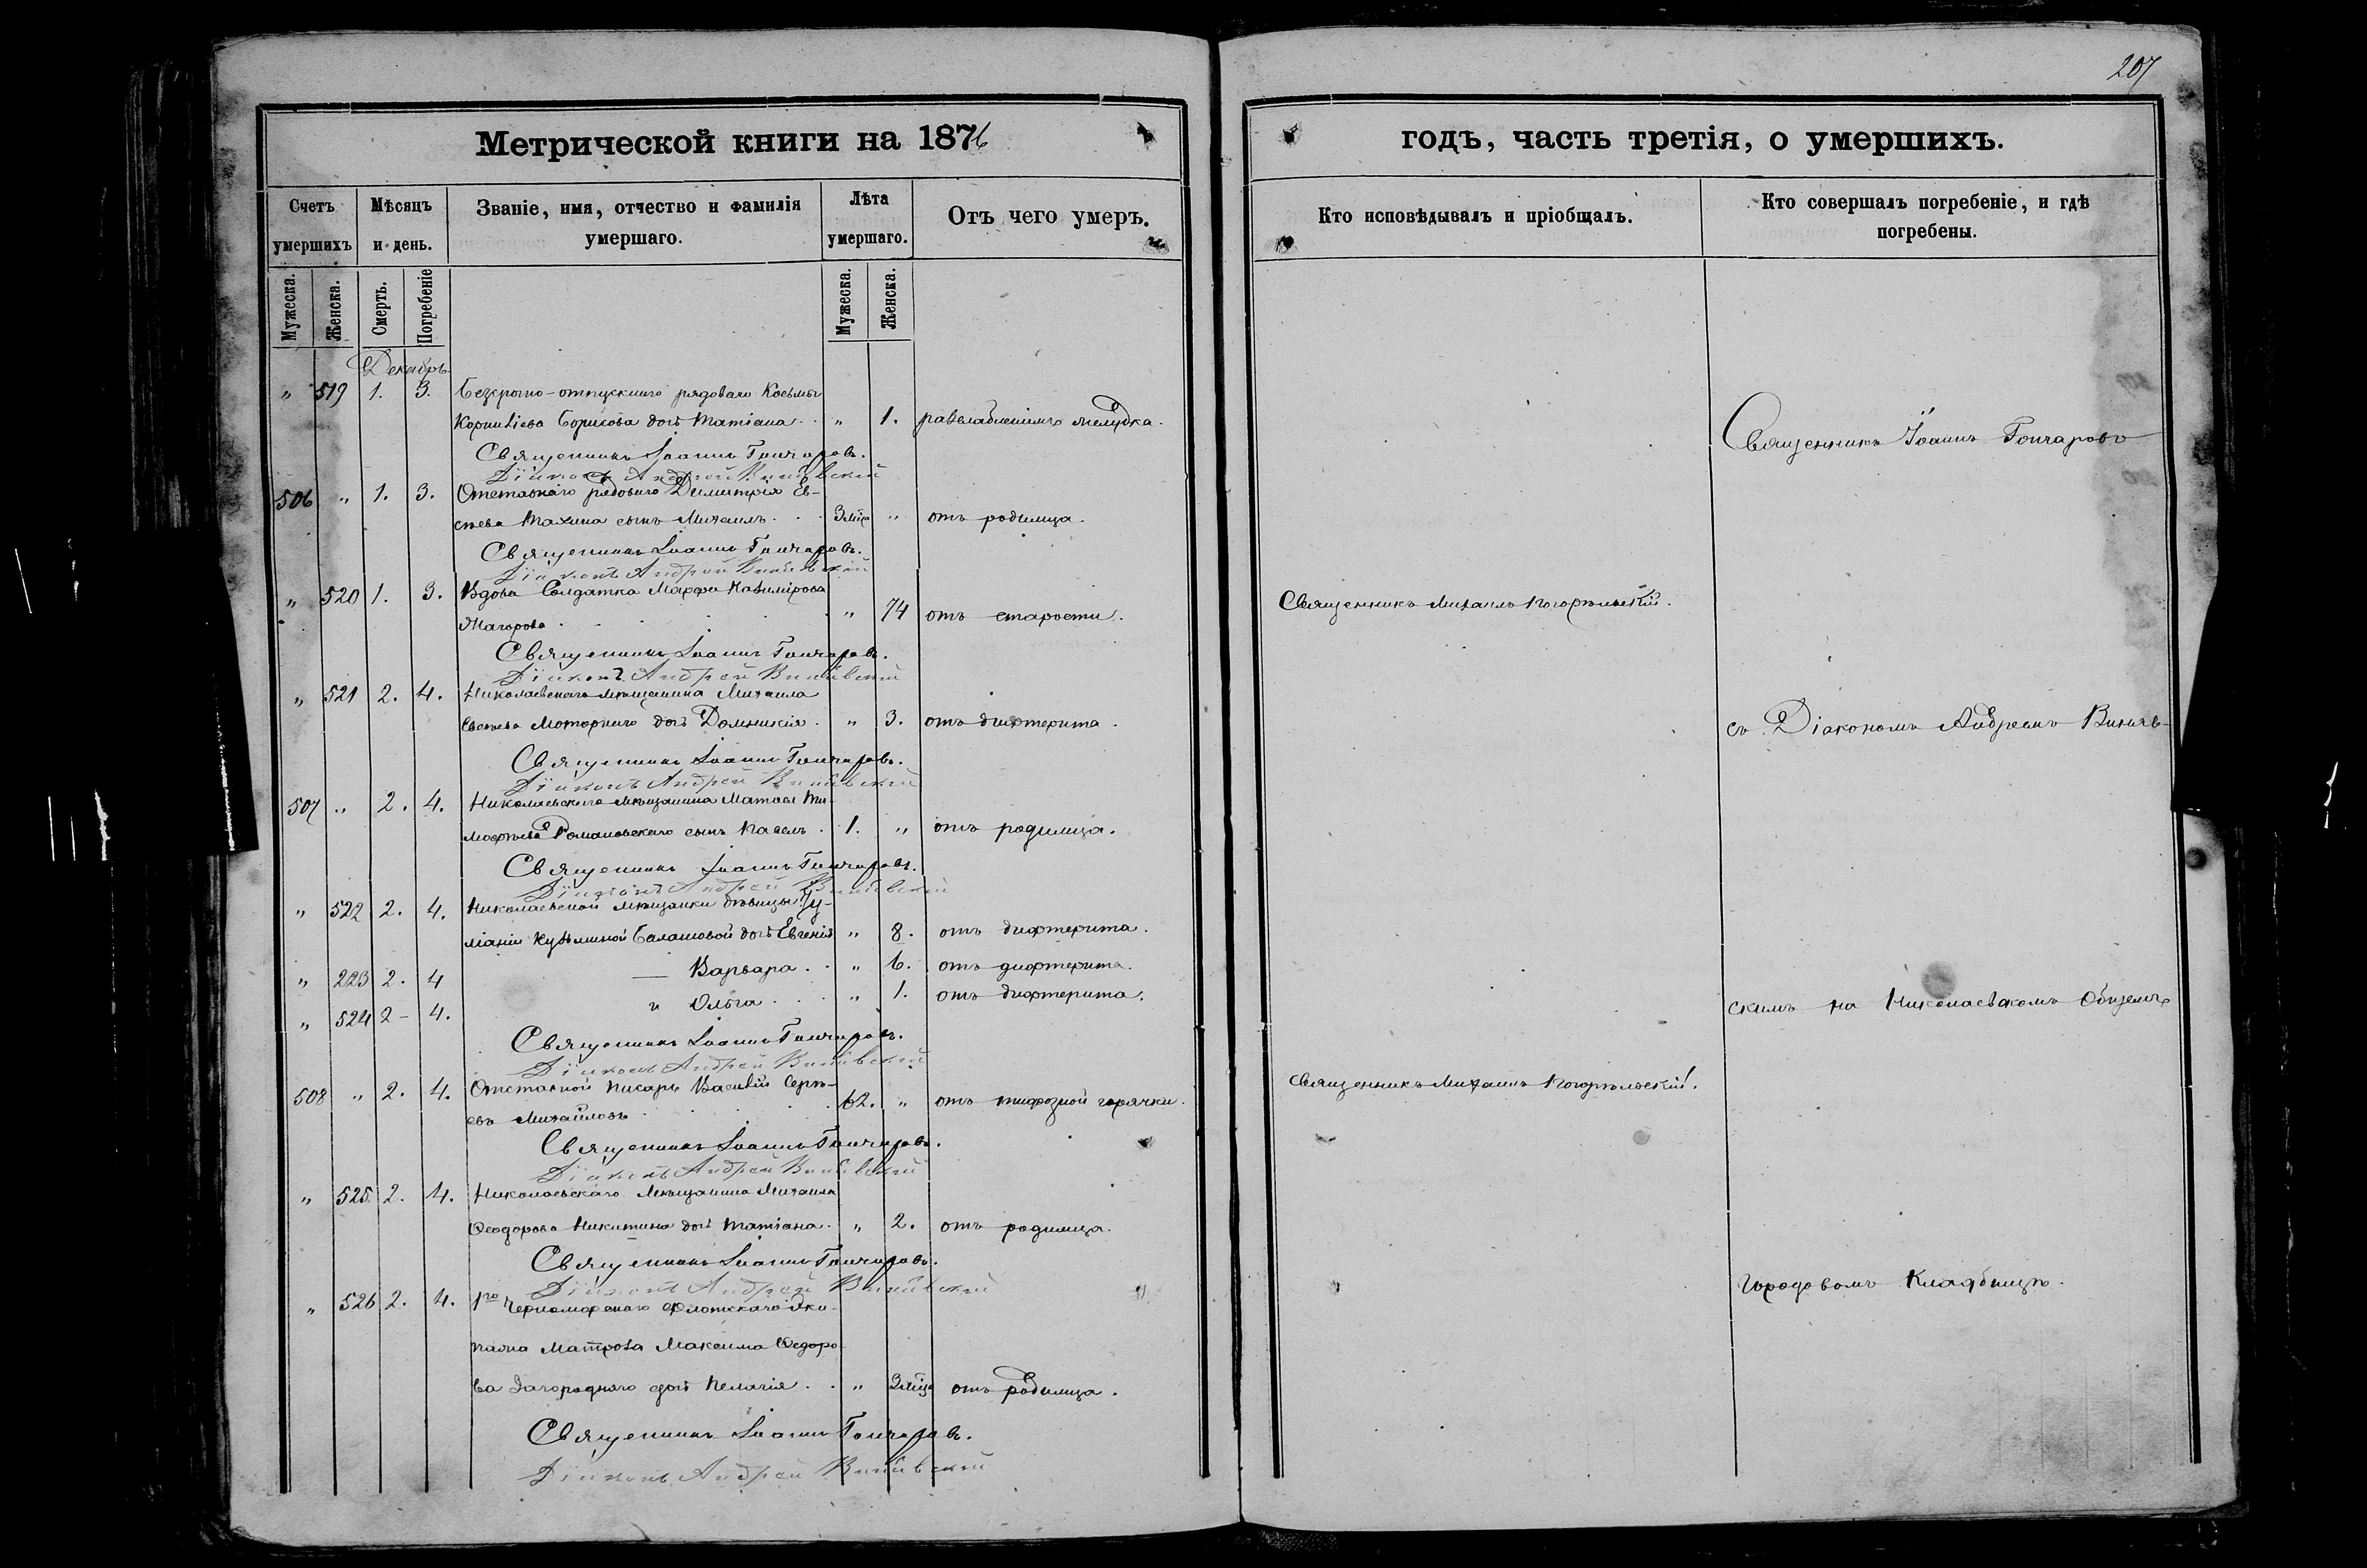 207
Метрической книги на 1876
годъ, часть третія, о умершихъ.
Счетъ умершихъ
Мѣсяцъ и день.
Званіе, имя, отчество и фамилія умершаго.
Лѣта умершаго.
Отъ чего умеръ.
Кто исповѣдывалъ и пріобщалъ.
Кто совершалъ погребеніе, и гдѣ погребены.
Мужеска.
Женска.
Смерть.
Погребеніе
Мужеска.
Женска.
Декабрь
" 519 1. 3. Безсрочно-отпускнаго рядоваго Косьмы
Борисова дочь Татіана . . " 1. желудка.
Священникъ Іоаннъ Гончаровъ.
Діаконъ Андрей
506 " 1. 3. Отставнаго рядоваго Димитрія Ев-
сѣева сынъ Михаилъ . . . 3 мѣс " отъ родимца.
Священникъ Іоаннъ Гончаровъ.
Діаконъ Андрей
" 520 1. 3. Вдова Солдатка Марфа
" 74 отъ старости. Священникъ Михаилъ Погорѣльскій.
Священникъ Іоаннъ Гончаровъ.
Діаконъ Андрей
" 521 2. 4. Николаевскаго мѣщанина Михаила
Евсѣева Моторнаго дочь Домникія . " 3. отъ дифтерита.
Священникъ Іоаннъ Гончаровъ.
Діаконъ Андрей
507 " 2. 4. Николаевскаго мѣщанина Матвея Ти-
мофѣева Романовскаго сынъ Павелъ . 1. " отъ родимца.
Священникъ Іоаннъ Гончаровъ.
Діаконъ Андрей
" 522 2. 4. Николаевской мѣщанки дѣвицы Іу-
ліаніи Кузьминой Балашовой дочь Евгенія " 8. отъ дифтерита.
" 223 2. 4 — Варвара . . " 6. отъ дифтерита.
" 524 2 - 4. и Ольга . . . " 1. отъ дифтерита.
Священникъ Іоаннъ Гончаровъ.
Діаконъ Андрей
508 " 2. 4. Отставной писарь Василій Сергѣ-
евъ Михайловъ 62. " отъ тифозной горячки. Священникъ Михаилъ Погорѣльскій.
Священникъ Іоаннъ Гончаровъ.
Діаконъ Андрей
" 525 2. 4. Николаевскаго мѣщанина Михаила
Ѳеодорова Никитина дочь Татіана . " 2. отъ родимца.
Священникъ Іоаннъ Гончаровъ.
Діаконъ Андрей
" 526 2. 4. 1го Черноморскаго флотскаго Эки-
пажа Матроса Максима Ѳедоро-
ва Загороднаго дочь Пелагія . . " 3 мѣс отъ родимца.
Священникъ Іоаннъ Гончаровъ.
Діаконъ Андрей
Священникъ Іоаннъ Гончаровъ
съ Діакономъ Андреемъ
скимъ на Николаевскомъ Общемъ
городовомъ Кладбищѣ.